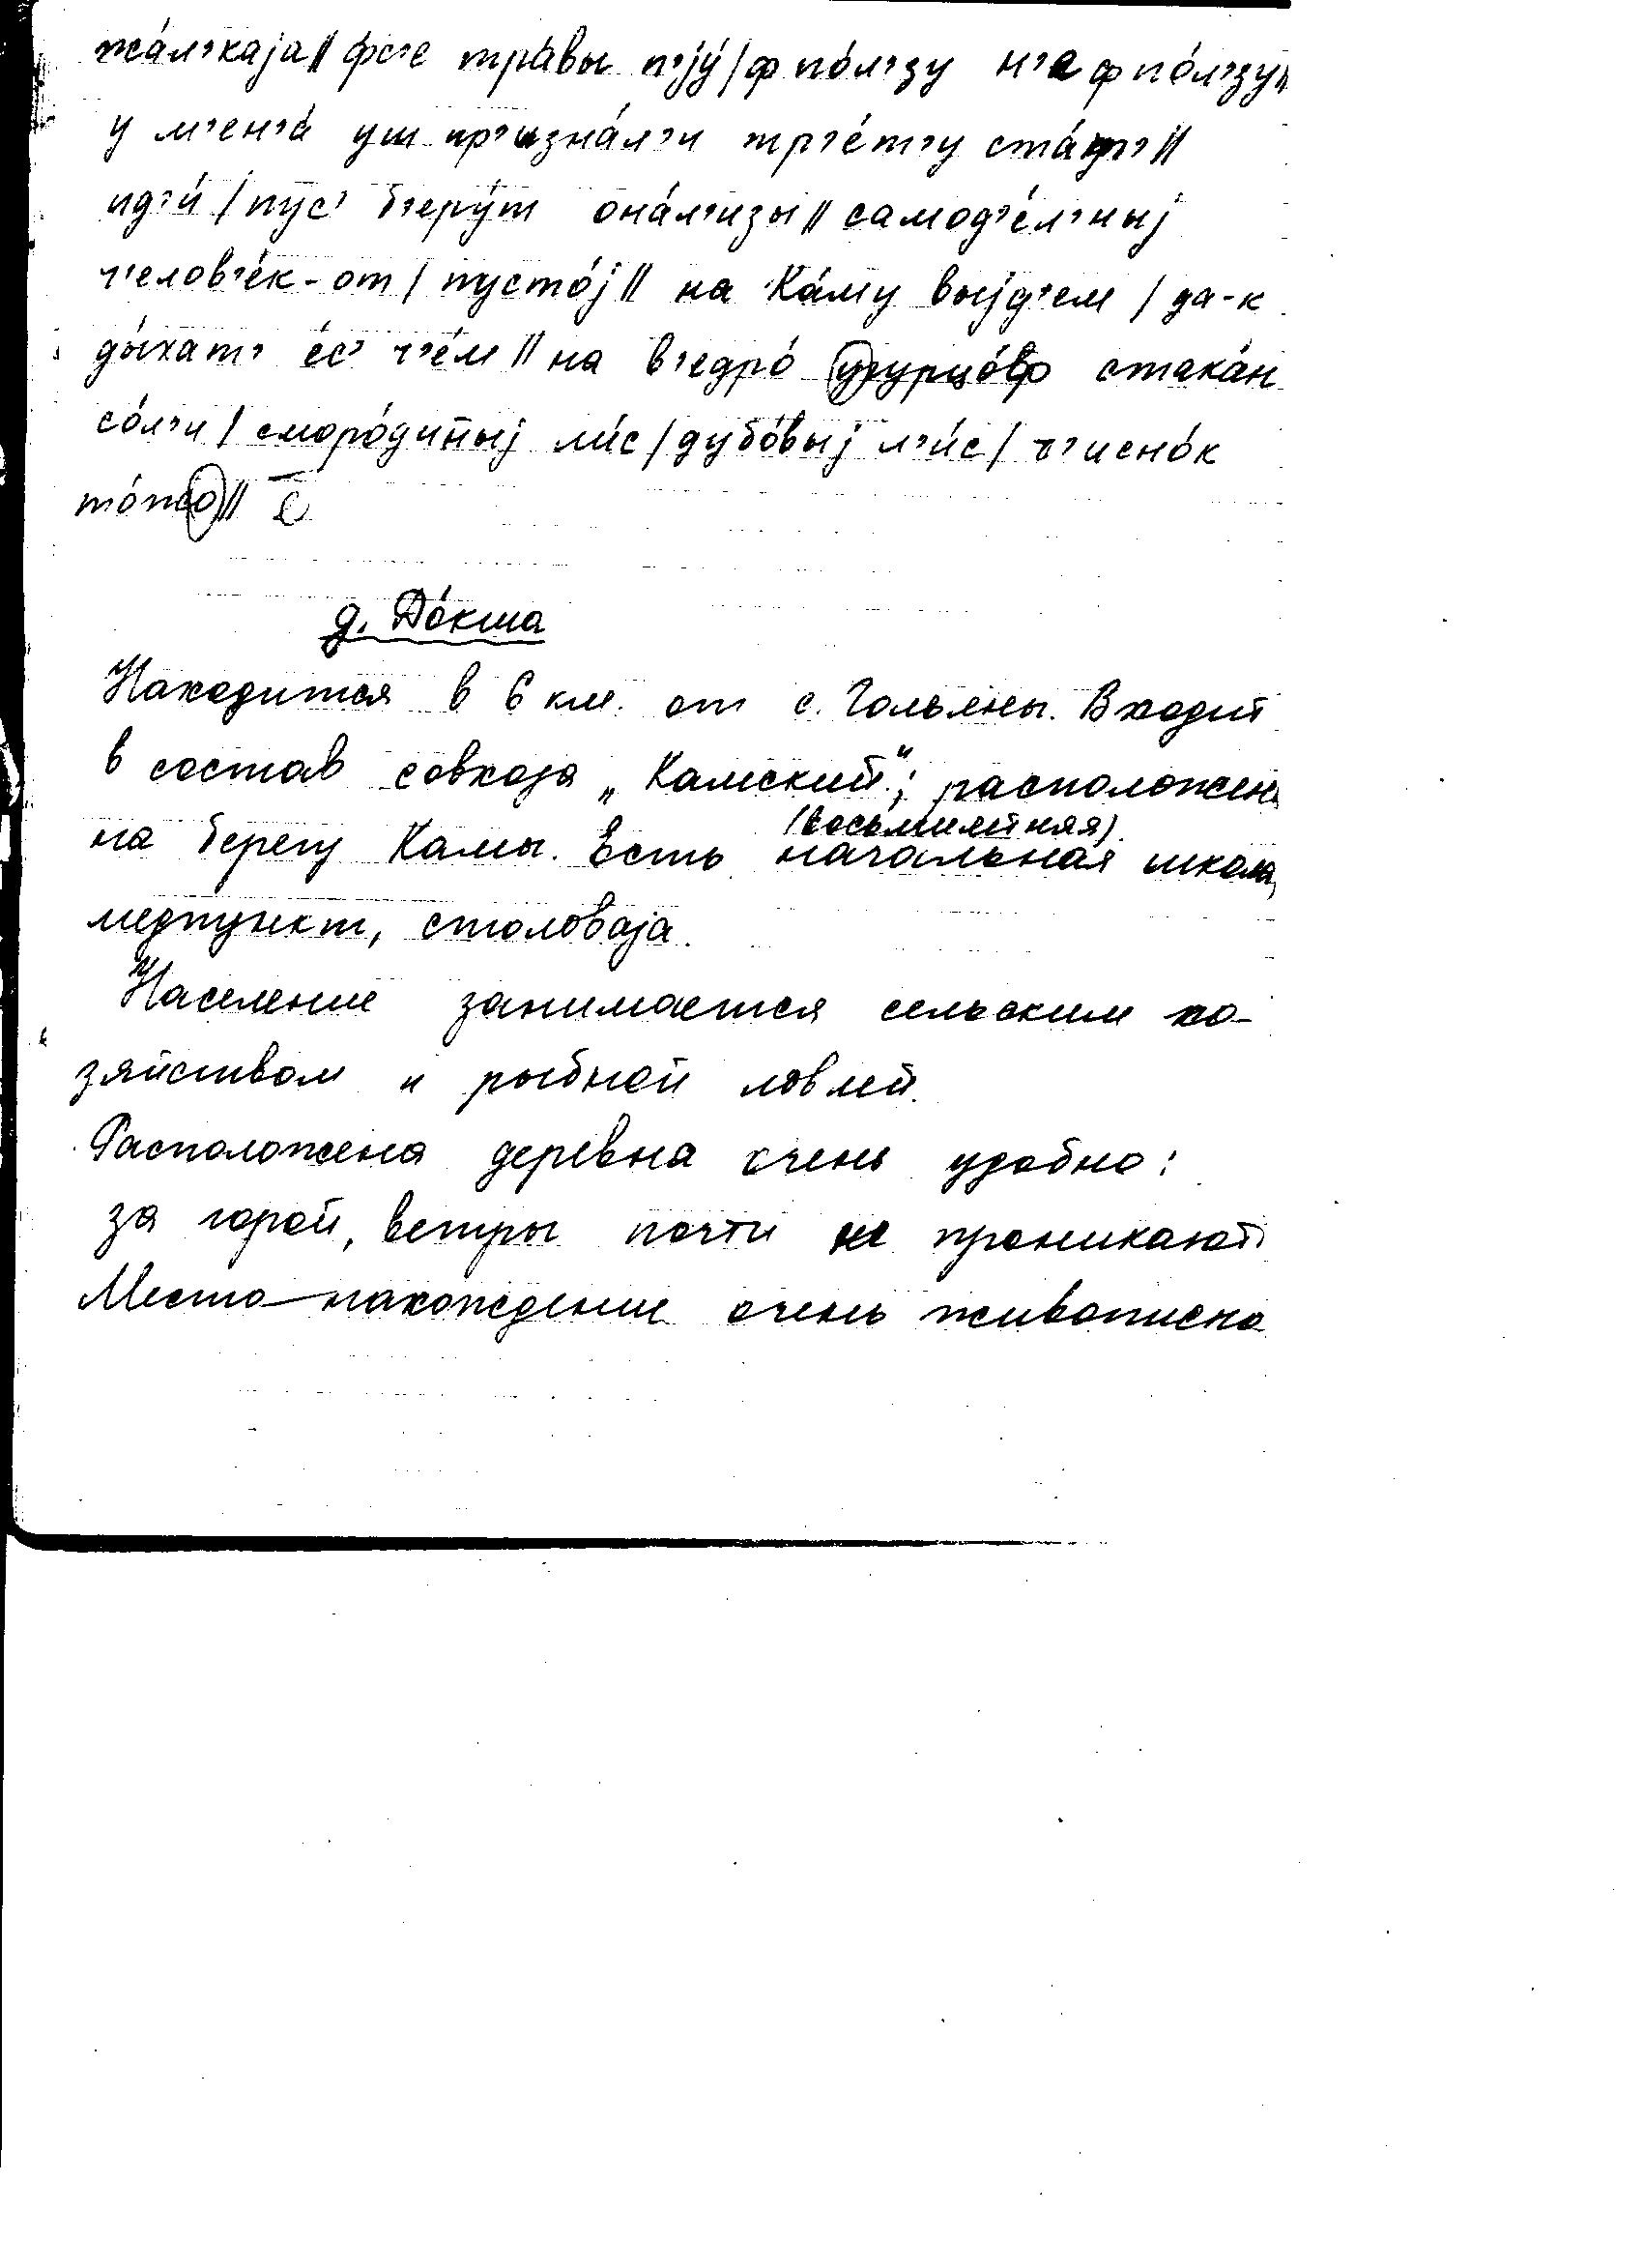 жа́л'каjа // фс'е тра́вы п'jу́ / ф по́л'зу н'е ф по́л'зу //
у м'ен'а́ уш пр'изна́л'и тр'е́т'у ста́д'и //
ид'и́ / пус' б'еру́т она́л'изы // самод'е́л'ныj
ч'елов'е́к-от / пусто́j // на Ка́му выjд'ем / да-к
ды́хат' е́с' ч'е́м // на в'едро́ угурцо́ф стака́н
со́л'и / сморо́дин̄ыj ли́с / дубо́выj л'и́с / ч'исно́к
то́жо // ē
д. До́кша
Находится в 6 км. от с. Гольяны. Входит
в состав совхоза „Камский"; расположена
(восьмилетняя)
на берегу Камы. Есть начальная школа,
медпункт, столоваjа.
Население занимается сельским хо-
зяйством и рыбной ловлей.
Расположена деревна очень удобно:
за горой, ветры почти не проникают.
Место-нахождение очень живописно